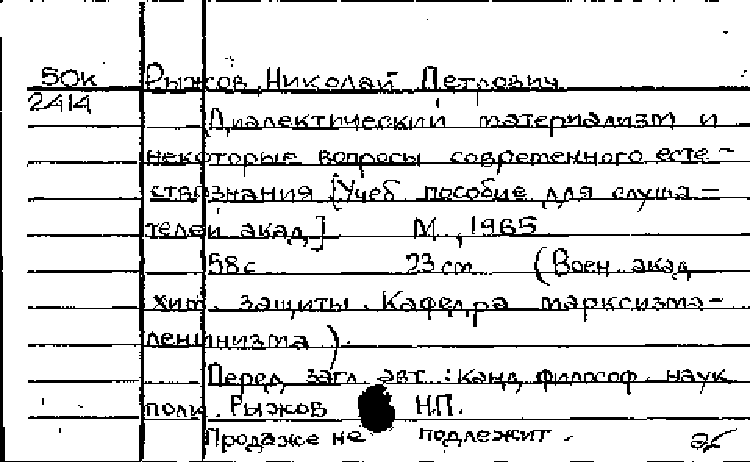 50к Рыжов, Николай Петрович
2414
Диалектический материализм и
некоторые вопросы современного есте-
ствознания [Учеб. пособие для слуша-
телей акад.] М., 1965
58 с 23 см (Воен. акад.
хим. защиты. Кафедра марксизма-
ленинизма).
Перед загл. авт.: канд. философ. наук
полк. Рыжов Н.П.
Продаже не подлежит.